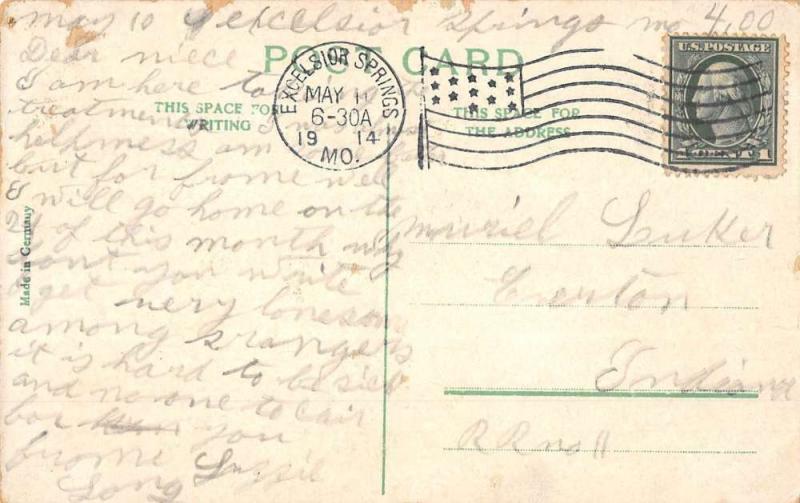 may 10 excelsior Springs mo 4.00
Dear niece
POST CARD
I am here to
treatment
helpness am
but for frome well
I will go home on the
24 of this month why
dont you write
I get very lonesom
among strangers
it is hard to be sick
and no one to cair
bor you
frome Lussie
Long
THIS SPACE FOR
WRITING
EXCELSIOR SPRINGS
MAY 11
6-30A
1914
MO.
THIS SPACE FOR
THE ADDRESS
U.S. POSTAGE
1 CENT 1
muriel Luker
Everton
Indiana
RR no 11
Made in Germany